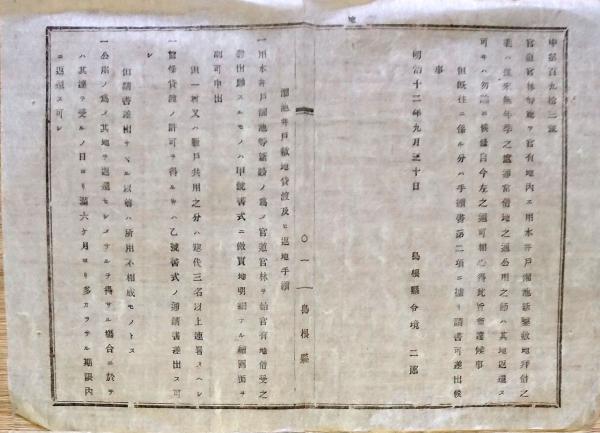 甲第百九拾三號
官道官林等總テ官有地内エ用水井戸溜池新鑿敷地拝借之
可キハ勿論ニ候條自今左之通可相心得此旨布達候事
但既往ニ係ル分ハ手續書第二項ニ據リ請書可差出候
事
明治十二年九月三十日
島根縣令境二郎
溜池井戸敷地貸渡及ヒ返地手續
○一一島根縣
一用水井戸溜池等新設ノ爲メ官道官林ヲ始官有地借受之
義出願スルモノハ甲號書式ニ倣實地明細ナル繪圖面ヲ
副可申出
但一村又ハ數戸共用之分ハ惣代三名以上連署スヘシ
一聲借貸渡ノ許可ヲ得ルキハ乙號書式ノ通請書差出ス可
シ
但請書差出サヽル以前ハ所用不相成モノトス
一公用ノ爲メ其地ヲ返還セシメサルヲ得サル塲合ニ於テ
ハ其達ヲ受ルノ日ヨリ滿六ケ月ヨリ多カラサル期限内
ニ返還ス可シ